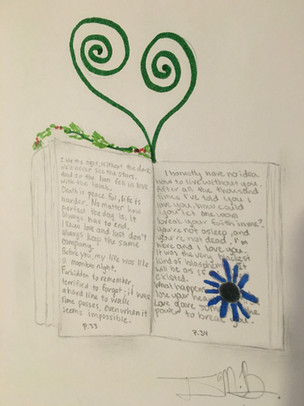 I like the night, without the dark
we'd never see the stars.
And so the lion fell in love
with the lamb.
Death is peaceful, life is
harder. No matter how
perfect the day is, it
always has to end.
I know love and lust don't
always keep the same
company.
Before you, my life was like
a moonless night.
Forbidden to remember,
terrified to forget; it was
a hard line to walk.
Time passes, even when it
seems impossible.
P.23
I honestly have no idea
how to live without you.
After all the thousand
times I've told you I
love you, how could
you let one word
break your faith in me?
you're not asleep and
you're not dead, I'm
here and I love you.
It was the very blackest
kind of blasphemy
will be as is
existed.
What happen
lose your hear
Love gave
power to break you.
P.24